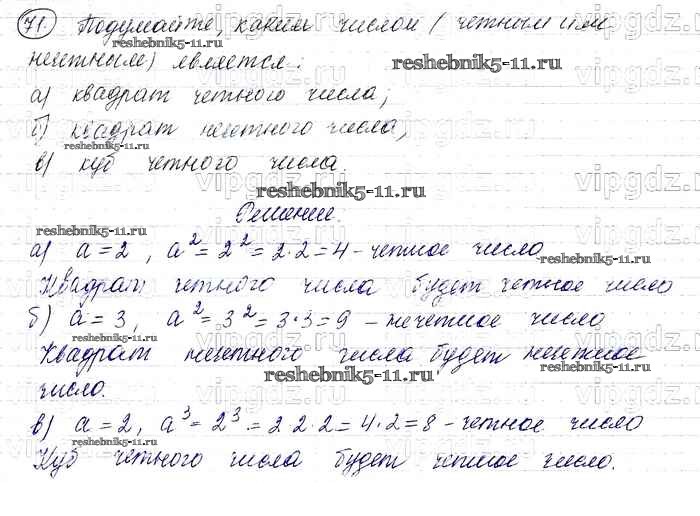 71. Подумайте, каким числом (четным или
нечетным) является:
а) квадрат четного числа;
б) квадрат нечетного числа;
в) куб четного числа
Решение.
а) a = 2, a² = 2² = 2·2 = 4 - четное число
Квадрат четного числа будет четное число
б) a = 3, a² = 3² = 3·3 = 9 - нечетное число
Квадрат нечетного числа будет нечетное
число.
в) a = 2, a³ = 2³ = 2·2·2 = 4·2 = 8 - четное число
Куб четного числа будет четное число.
reshebnik5-11.ru
reshebnik5-11.ru
reshebnik5-11.ru
reshebnik5-11.ru
reshebnik5-11.ru
reshebnik5-11.ru
reshebnik5-11.ru
reshebnik5-11.ru
reshebnik5-11.ru
reshebnik5-11.ru
vipgdz.ru